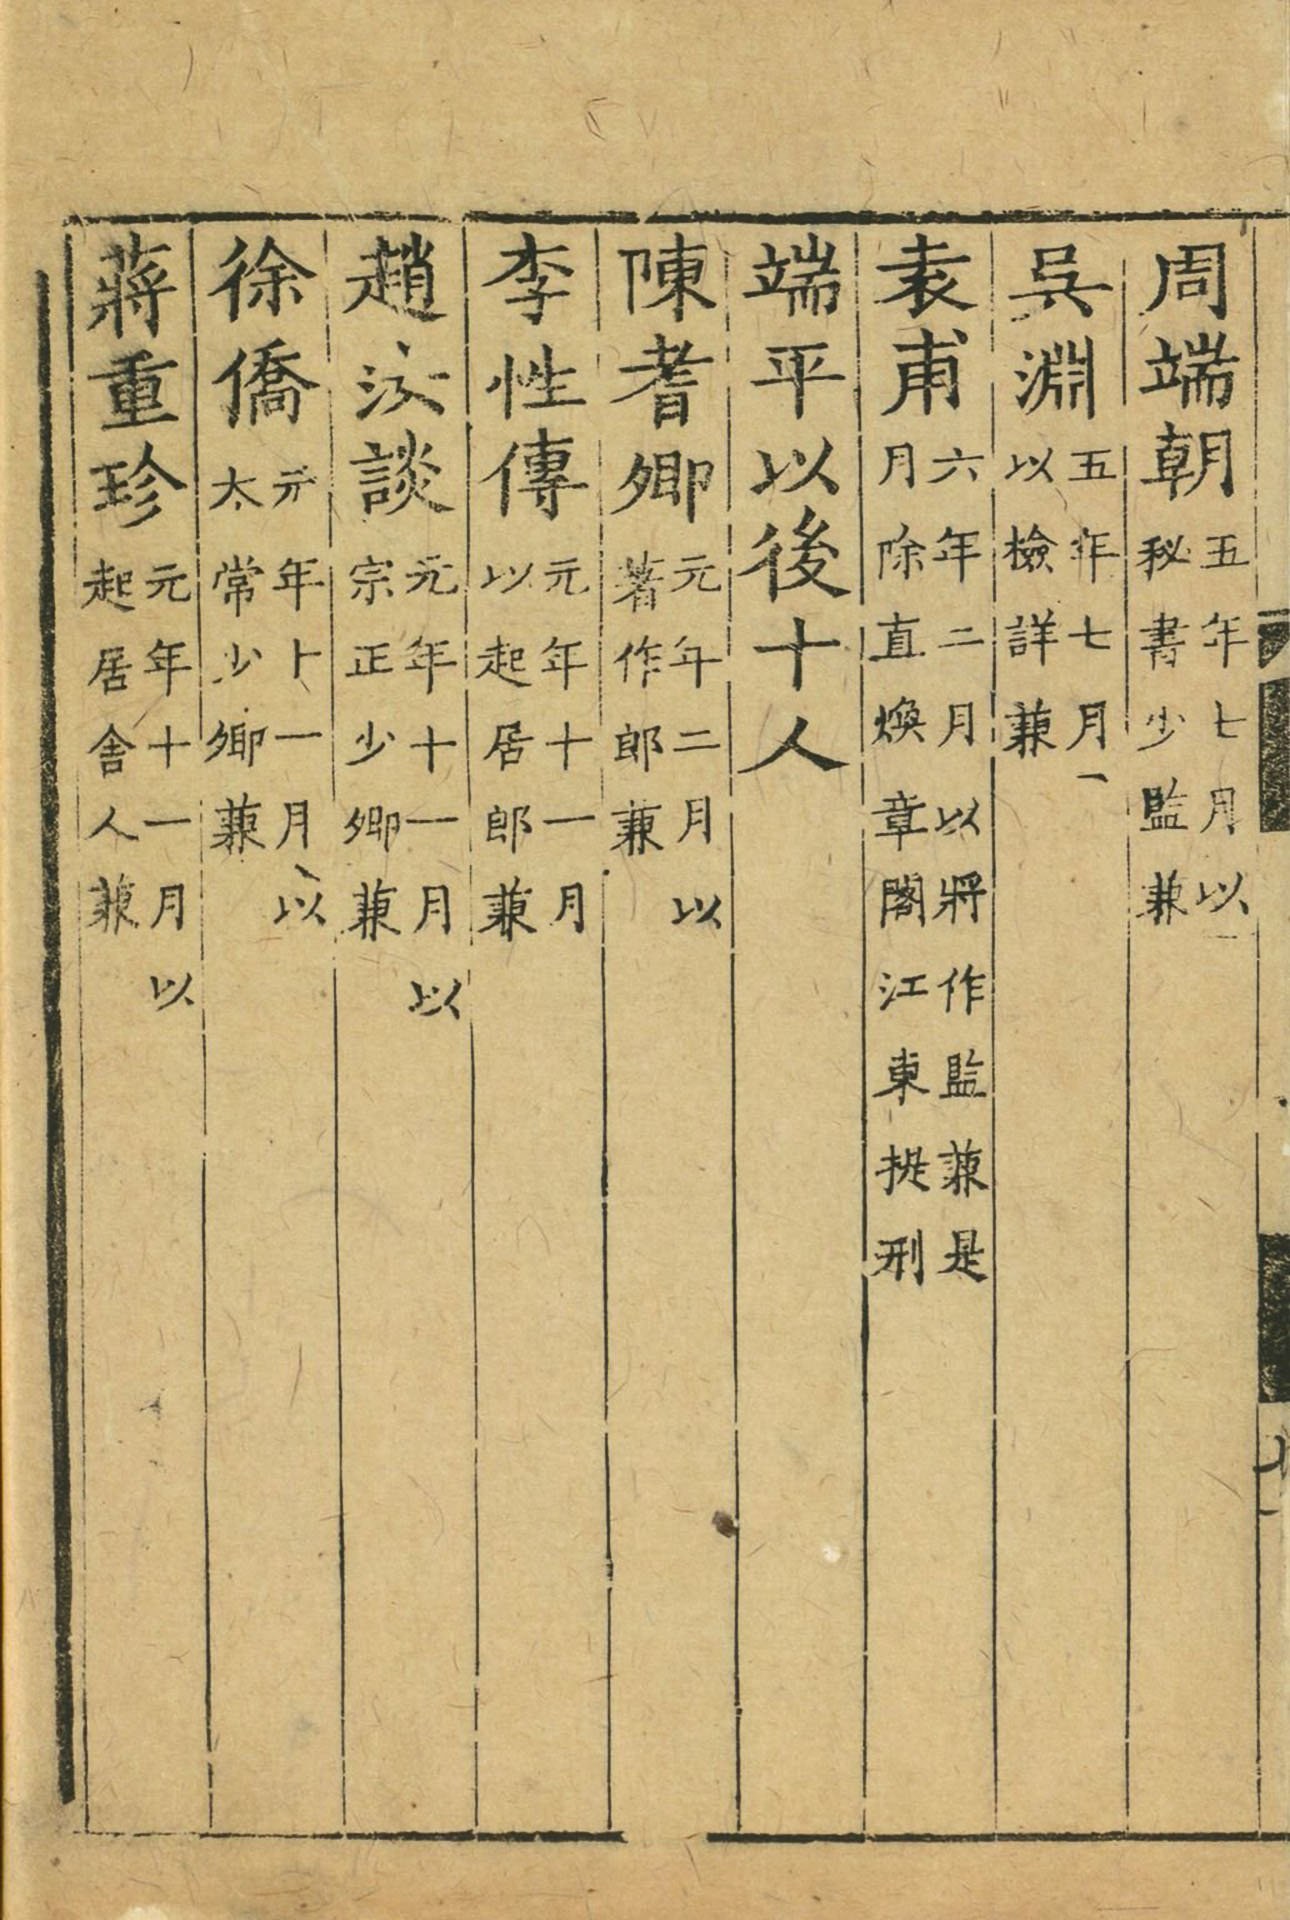 周端朝五年七月以秘書少監兼
吳淵五年七月以檢詳兼
袁甫六年二月以將作監兼是月除直煥章閣江東提刑
端平以後十人
陳耆卿元年二月以著作郎兼
李性傳元年十一月以起居郎兼
趙汝談元年十一月以宗正少卿兼
徐僑元年十一月以太常少卿兼
蔣重珍元年十一月以起居舍人兼